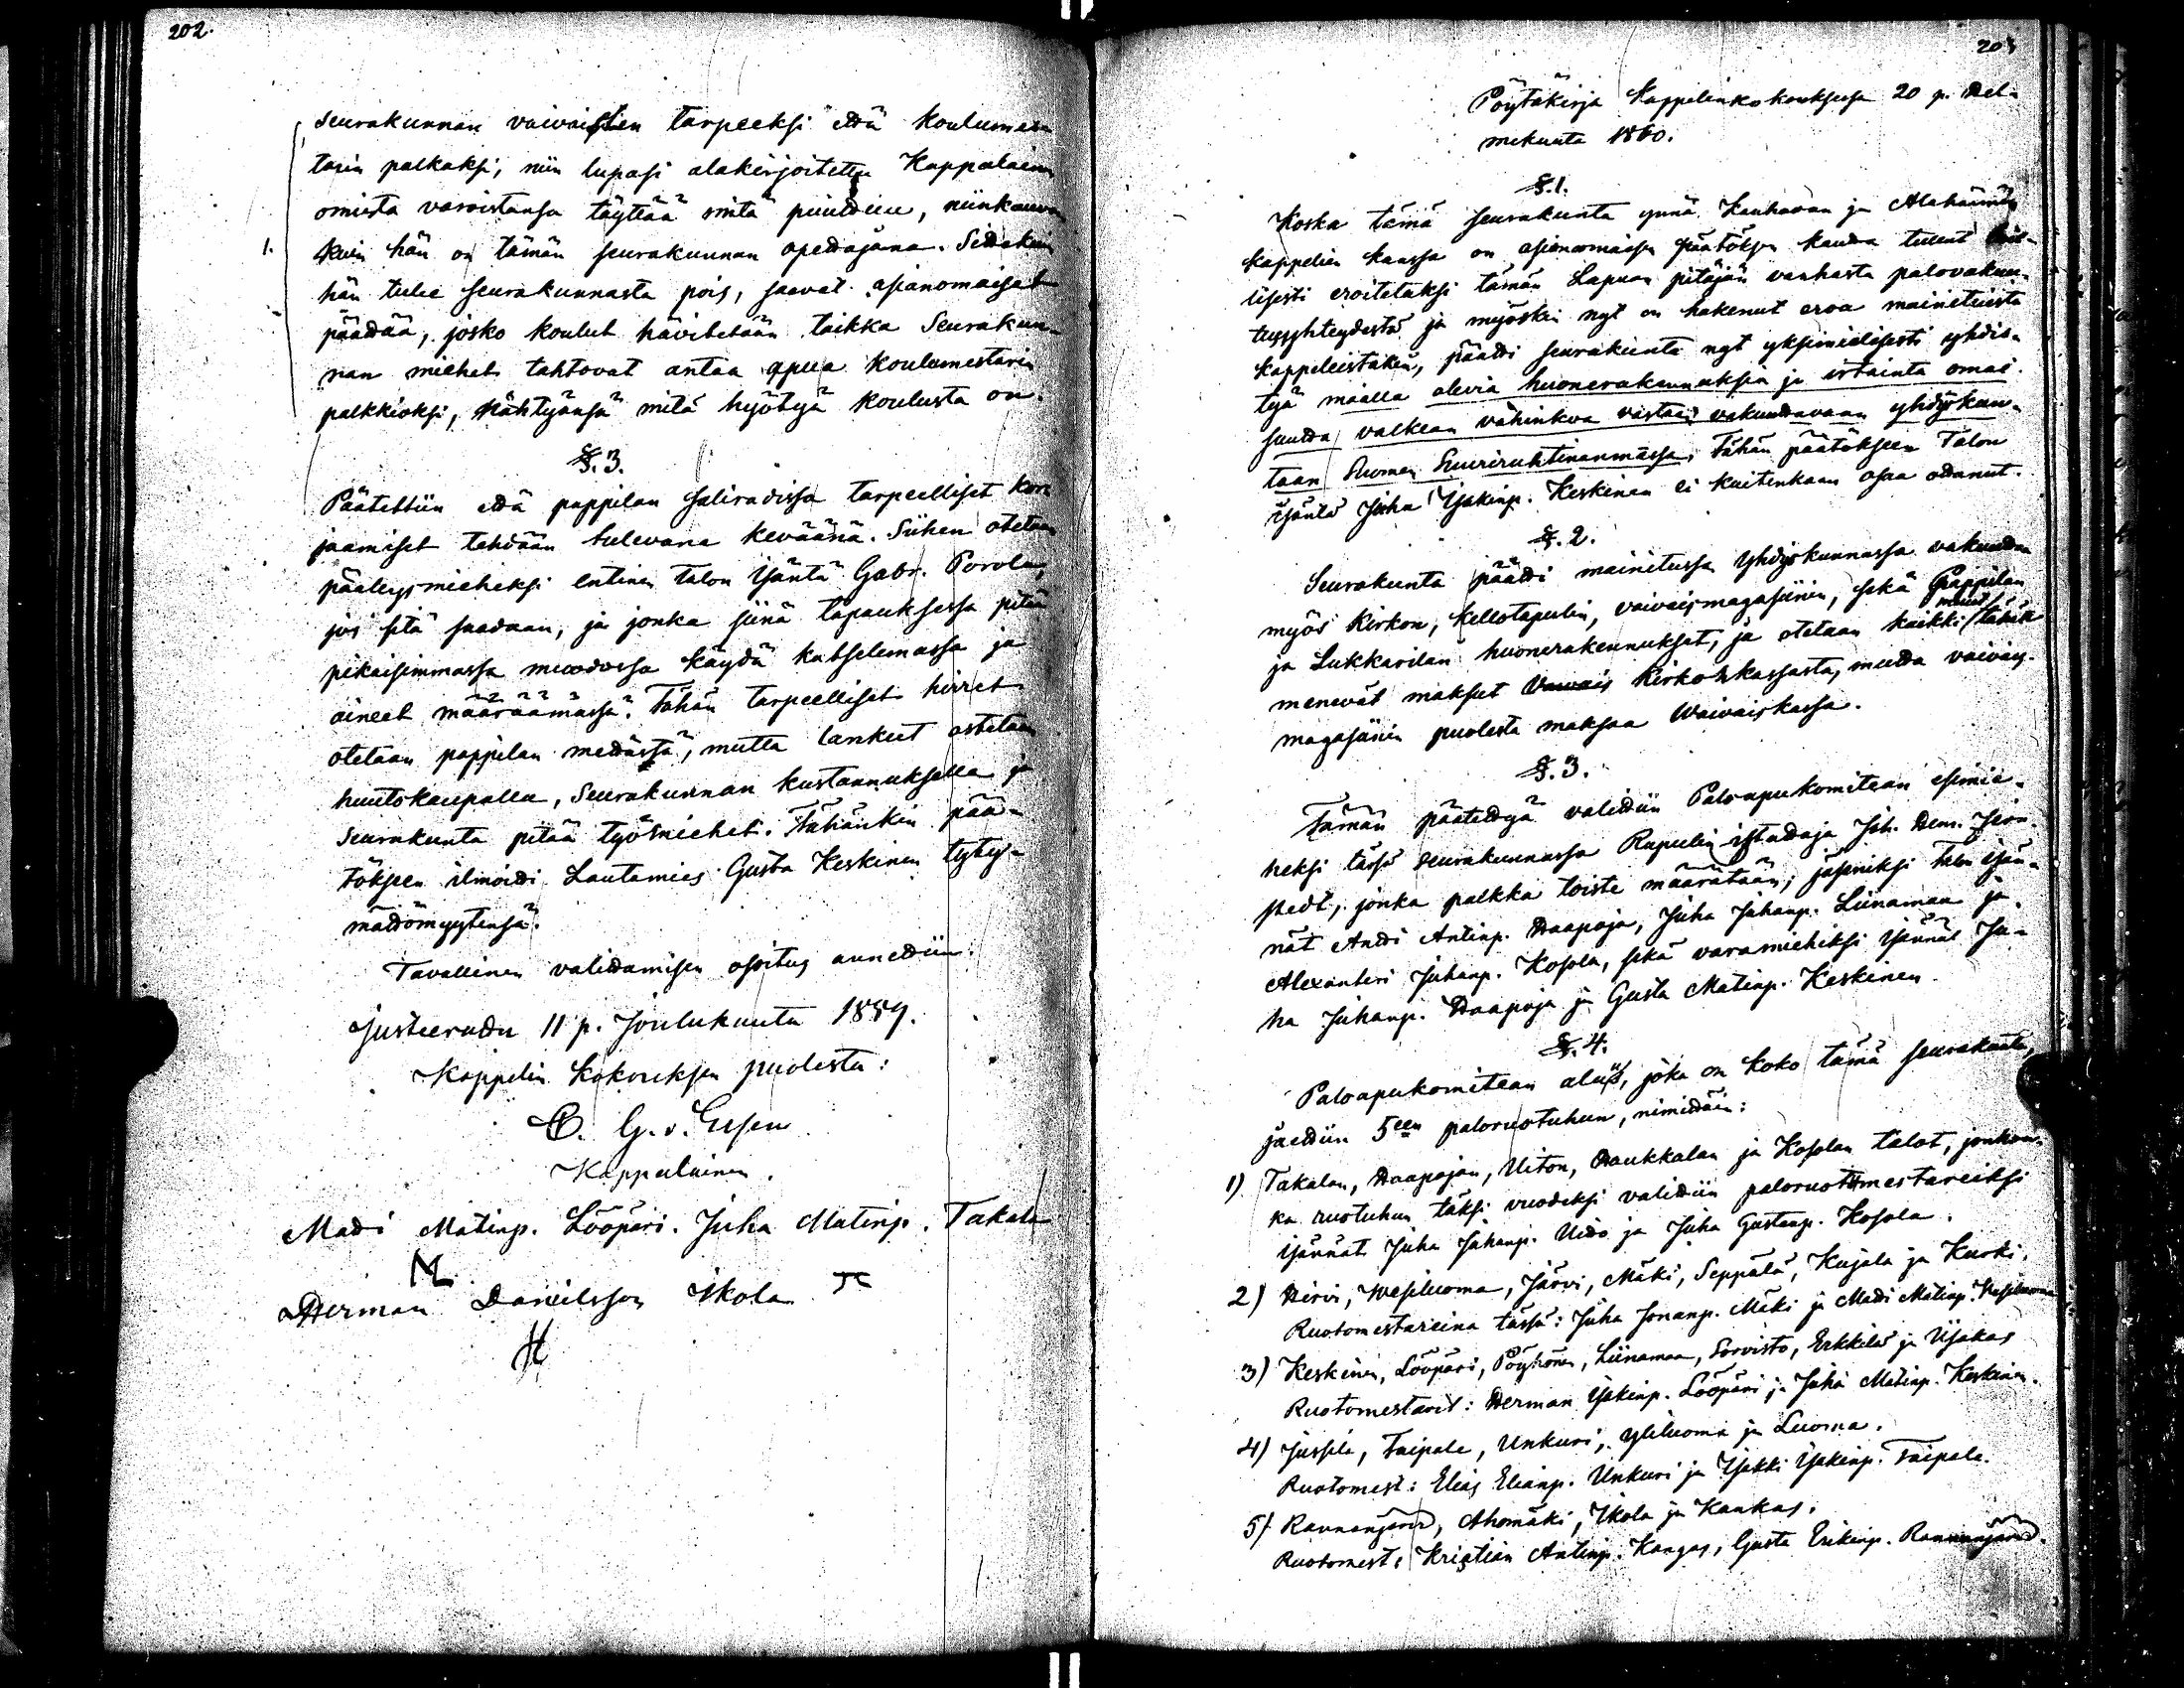 202.
seurakunnan vaivaisten tarpeeksi että koulumes-
tarin palkaksi, niin lupasi alakirjoitettu Kappalainen
omista varoistansa täyttää mitä puuttuu, niinkauvan
1. kuin hän on tämän seurakunnan opettajana. Sittekuin
hän tulee seurakunnasta pois, saavat asianomaiset
päättää, josko koulut hävitetään taikka Seurakun-
nan miehet tahtovat antaa apua koulumestarin
palkkioksi, nähtyänsä mitä hyötyä koulusta on.
§. 3.
Päätettiin että pappilan saliradissa tarpeelliset kor-
jaamiset tehdään tulevana keväänä. Siihen otetaan
päälysmieheksi entinen talon Isäntä Gabr. Porola,
jos sitä saadaan, ja jonka siinä tapauksessa pitää
pikaisimmassa muodossa käydä katselemassa ja
aineet määräämässä. Tähän tarpeelliset hirret
otetaan pappilan mettästä, mutta lankut ostetaan
huutokaupalla, Seurakunnan kustannuksella ja
Seurakunta pitää työmiehet. Tähänkin pää-
tökseen ilmoitti Lautamies Gusta Keskinen tyty-
mättömyytensä.
Tavallinen valittamisen osoitus annettiin.
Justeerattu 11 p. Joulukuuta 1859.
Kappelin Kokouksen puolesta:
C. G. v. Essen
Kappalainen.
Matti Matinp. Lööpäri. Juha Matinp. Takala
Herman Danielsson Ikola
H
203
Pöytäkirja Kappelinkokouksessa 20 p. Hel-
mikuuta 1860.
§. 1.
Koska tämä seurakunta ynnä Kauhavan ja Alahärmän
kappelien kanssa on asianomaisen päätöksen kautta tullut
lisesti eroitetuksi tämän Lapuan pitäjän vanhasta palovakuu-
tusyhteydestä ja myöskin nyt on hakenut eroa mainituista
kappeleistakin, päätti seurakunta nyt yksimielisesti yhdis-
tyä maalla olevia huonerakennuksia ja irtainta omai-
suutta valkean vahinkoa vastaan vakuuttavaan yhdyskun-
taan Suomen Suuriruhtinanmaassa, Tähän päätökseen Talon
isäntä Juha Isakinp. Keskinen ei kuitenkaan osaa ottanut.
§. 2.
Seurakunta päätti mainitussa yhdyskunnassa vakuuttaa
myös Kirkon, Kellotapulin, vaivaismagasiinin, sekä Pappilan
ja Lukkarilan huonerakennukset, ja otetaan kaikki muut tähän
menevät maksut Vaivais Kirkon kassasta, mutta vaivais-
magasiinin puolesta maksaa Waivaiskassa.
§. 3.
Tämän päätettyä valittiin Paloapukomitean esimie-
heksi tässä seurakunnassa Rupulin istuttaja Joh. Hem.
stedt, jonka palkka toiste määrätään; jäseniksi Talon isän-
nät Antti Antinp. Haapoja, Juha Juhanp. Liinamaa ja
Alexanteri Juhanp. Kosola, sekä varamiehiksi isännät Ju-
ha Juhanp. Haapoja ja Gusta Matinp. Keskinen.
§. 4.
Paloapukomitean alus, joka on koko tämä seurakunta,
jaettiin 5een paloruotuhun, nimittäin:
1) Takalan, Haapojan, Uiton, Haukkalan ja Kosolan talot, jonkun-
ka ruotuhun täksi vuodeksi valittiin paloruotumestareiksi
isännät Juha Juhanp. Uido ja Juha Gustanp. Kosola.
2) Hirvi, Wesiluoma, Järvi, Mäki, Seppälä, Kujala ja Kurki.
Ruotomestareina tässä: Juha Jonanp. Mäki ja Matti Matinp. Wesiluoma
3) Keskinen, Lööpäri, Pöyhönen, Liinamaa, Sorvisto, Erkkilä ja Iisakas
Ruotomestarit: Herman Isakinp. Lööpäri ja Juha Matinp. Keskinen.
4) Jussila, Taipale, Unkuri, Yliluoma ja Luoma.
Ruotomest: Elias Elianp. Unkuri ja Isakki Isakinp. Taipale.
5) Rannanjärvi, Ahomäki, Ikola ja Kankas.
Ruotomest: Kristian Antinp. Kangas, Gusta Erikinp. Rannanjärvi.